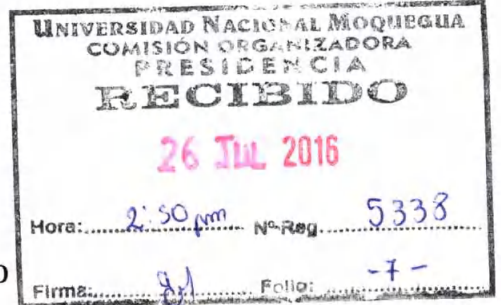 UNIVERSIDAD NACIONAL MOQUEGUA
COMISIÓN ORGANIZADORA
PRESIDENCIA
RECIBIDO
26 JUL 2016
Hora: 2:50 pm Nº Reg. 5338
Firma: Folio: -7-
O